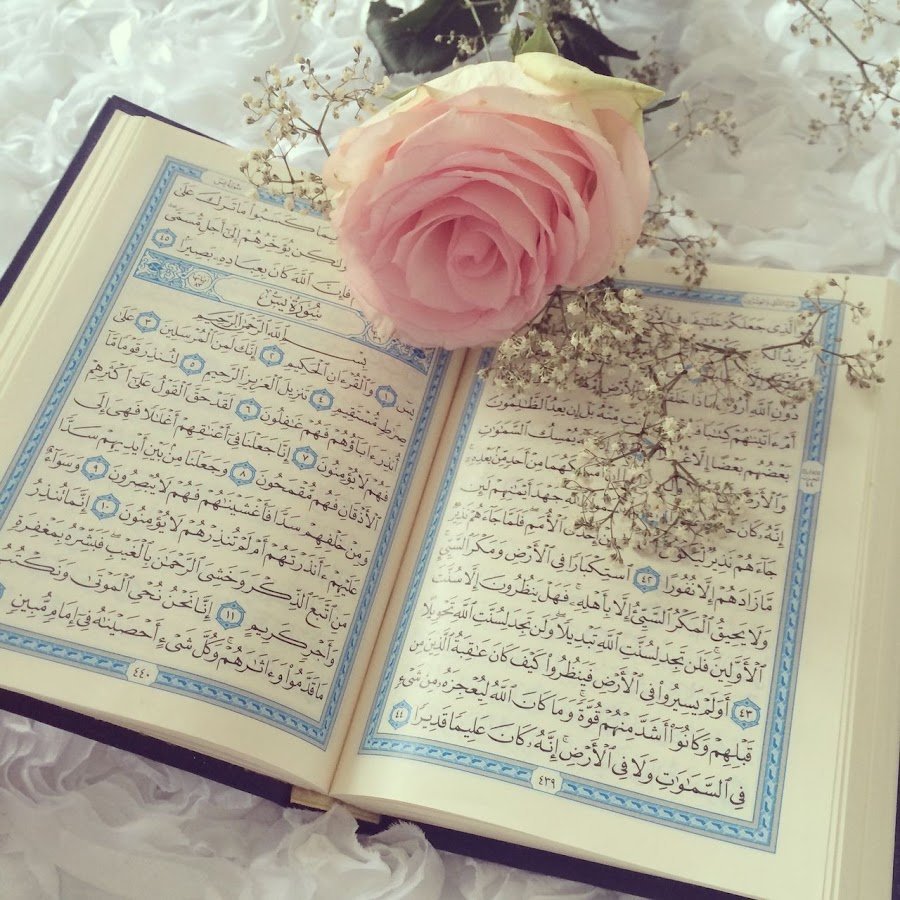 ٱلَّذِى جَعَلَكُمْ خَلَٰٓئِفَ فِى
يَزِيدُ
دُونِ ٱللَّهِ أَرُونِى مَاذَا
أَمْ ءَاتَيْنَٰهُمْ كِتَٰبًا مِّنْهُ بَلْ إِن يَعِدُ ٱلظَّٰلِمُونَ
بَعْضُهُم بَعْضًا إِلَّا يُمْسِكُ ٱلسَّمَٰوَٰتِ
وَٱلْأَرْضَ مِنْ أَحَدٍ مِّنۢ بَعْدِهِۦٓ
إِنَّهُۥ كَانَ جَهْدَ أَيْمَٰنِهِمْ لَئِن
جَآءَهُمْ نَذِيرٌ ٱلْأُمَمِ فَلَمَّا جَآءَهُمْ نَذِيرٌ
مَّا زَادَهُمْ إِلَّا نُفُورًا ٤٢ ٱسْتِكْبَارًا فِى ٱلْأَرْضِ وَمَكْرَ ٱلسَّيِّئِ
وَلَا يَحِيقُ ٱلْمَكْرُ ٱلسَّيِّئُ إِلَّا بِأَهْلِهِۦ فَهَلْ يَنظُرُونَ إِلَّا سُنَّتَ
ٱلْأَوَّلِينَ فَلَن تَجِدَ لِسُنَّتِ ٱللَّهِ تَبْدِيلًا وَلَن تَجِدَ لِسُنَّتِ ٱللَّهِ تَحْوِيلًا
٤٣ أَوَلَمْ يَسِيرُوا۟ فِى ٱلْأَرْضِ فَيَنظُرُوا۟ كَيْفَ كَانَ عَٰقِبَةُ ٱلَّذِينَ مِن
قَبْلِهِمْ وَكَانُوٓا۟ أَشَدَّ مِنْهُمْ قُوَّةً وَمَا كَانَ ٱللَّهُ لِيُعْجِزَهُۥ مِن شَىْءٍ
فِى ٱلسَّمَٰوَٰتِ وَلَا فِى ٱلْأَرْضِ إِنَّهُۥ كَانَ عَلِيمًا قَدِيرًا ٤٤
٤٣٩
بِمَا كَسَبُوا۟ مَا تَرَكَ عَلَىٰ
وَلَٰكِن يُؤَخِّرُهُمْ إِلَىٰٓ أَجَلٍ مُّسَمًّى
فَإِنَّ ٱللَّهَ كَانَ بِعِبَادِهِۦ بَصِيرًۢا ٤٥
سُورَةُ يسٓ
بِسْمِ ٱللَّهِ ٱلرَّحْمَٰنِ ٱلرَّحِيمِ
يسٓ ١ وَٱلْقُرْءَانِ ٱلْحَكِيمِ ٢ إِنَّكَ لَمِنَ ٱلْمُرْسَلِينَ ٣ عَلَىٰ
صِرَٰطٍ مُّسْتَقِيمٍ ٤ تَنزِيلَ ٱلْعَزِيزِ ٱلرَّحِيمِ ٥ لِتُنذِرَ قَوْمًا مَّآ
أُنذِرَ ءَابَآؤُهُمْ فَهُمْ غَٰفِلُونَ ٦ لَقَدْ حَقَّ ٱلْقَوْلُ عَلَىٰٓ أَكْثَرِهِمْ
فَهُمْ لَا يُؤْمِنُونَ ٧ إِنَّا جَعَلْنَا فِىٓ أَعْنَٰقِهِمْ أَغْلَٰلًا فَهِىَ إِلَى
ٱلْأَذْقَانِ فَهُم مُّقْمَحُونَ ٨ وَجَعَلْنَا مِنۢ بَيْنِ أَيْدِيهِمْ سَدًّا
وَمِنْ خَلْفِهِمْ سَدًّا فَأَغْشَيْنَٰهُمْ فَهُمْ لَا يُبْصِرُونَ ٩ وَسَوَآءٌ
عَلَيْهِمْ ءَأَنذَرْتَهُمْ أَمْ لَمْ تُنذِرْهُمْ لَا يُؤْمِنُونَ ١٠ إِنَّمَا تُنذِرُ
مَنِ ٱتَّبَعَ ٱلذِّكْرَ وَخَشِىَ ٱلرَّحْمَٰنَ بِٱلْغَيْبِ فَبَشِّرْهُ بِمَغْفِرَةٍ
وَأَجْرٍ كَرِيمٍ ١١ إِنَّا نَحْنُ نُحْىِ ٱلْمَوْتَىٰ وَنَكْتُبُ
مَا قَدَّمُوا۟ وَءَاثَٰرَهُمْ وَكُلَّ شَىْءٍ أَحْصَيْنَٰهُ فِىٓ إِمَامٍ مُّبِينٍ
٤٤٠